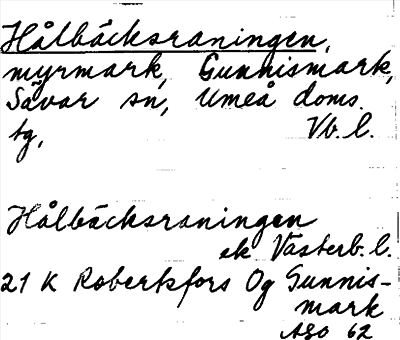 Hålbäcksraningen,
myrmark, Gunnismark,
Sävar sn, Umeå doms.
tg, Vb. l.
Hålbäcksraningen
ek Västerb. l.
21 K Robertsfors Og Gunnis-
mark
ASO 62